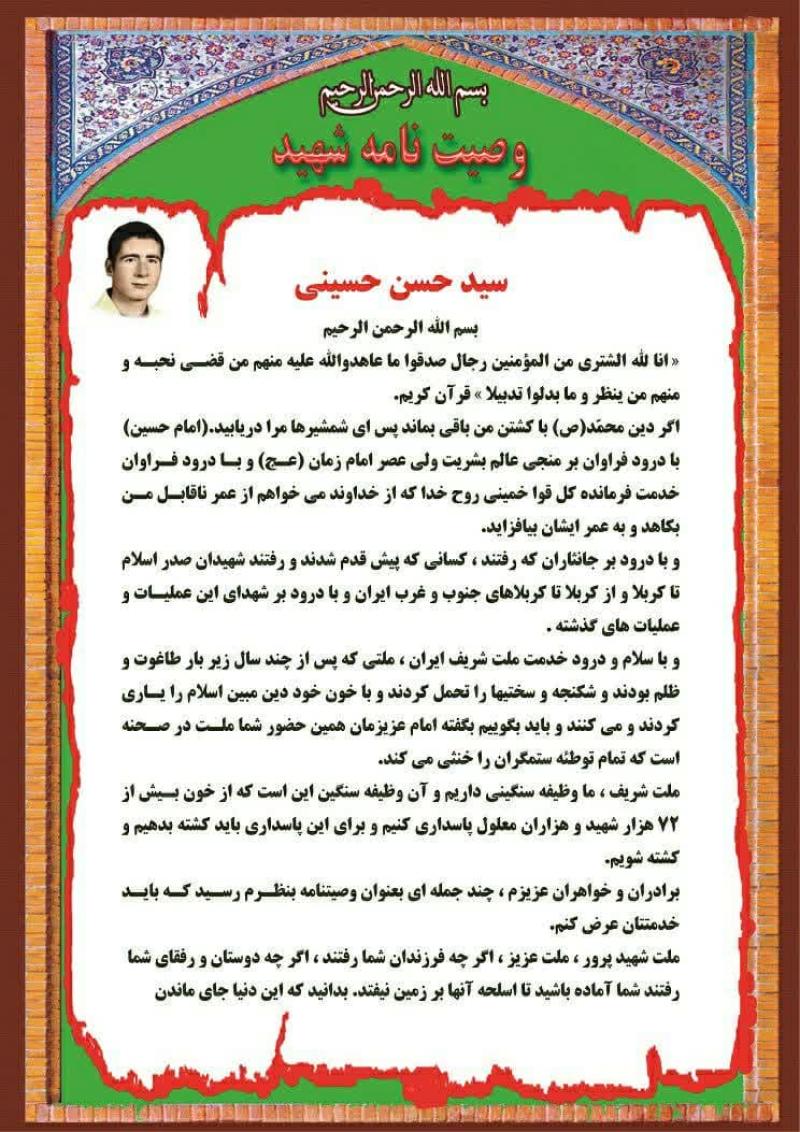 بسم الله الرحمن الرحیم
وصیت نامه شهید
سید حسن حسینی
بسم الله الرحمن الرحیم
« انا لله الشتری من المؤمنین رجال صدقوا ما عاهدوالله علیه منهم من قضی نحبه و
منهم من ینظر و ما بدلوا تدبیلا » قرآن کریم.
اگر دین محمّد(ص) با کشتن من باقی بماند پس ای شمشیرها مرا دریابید.(امام حسین)
با درود فراوان بر منجی عالم بشریت ولی عصر امام زمان (عج) و با درود فراوان
خدمت فرمانده کل قوا خمینی روح خدا که از خداوند می خواهم از عمر ناقابل من
بکاهد و به عمر ایشان بیافزاید.
و با درود بر جانثاران که رفتند ، کسانی که پیش قدم شدند و رفتند شهیدان صدر اسلام
تا کربلا و از کربلا تا کربلاهای جنوب و غرب ایران و با درود بر شهدای این عملیات و
عملیات های گذشته .
و با سلام و درود خدمت ملت شریف ایران ، ملتی که پس از چند سال زیر بار طاغوت و
ظلم بودند و شکنجه و سختیها را تحمل کردند و با خون خود دین مبین اسلام را یاری
کردند و می کنند و باید بگوییم بگفته امام عزیزمان همین حضور شما ملت در صحنه
است که تمام توطئه ستمگران را خنثی می کند.
ملت شریف ، ما وظیفه سنگینی داریم و آن وظیفه سنگین این است که از خون بیش از
۷۲ هزار شهید و هزاران معلول پاسداری کنیم و برای این پاسداری باید کشته بدهیم و
کشته شویم.
برادران و خواهران عزیزم ، چند جمله ای بعنوان وصیتنامه بنظرم رسید که باید
خدمتتان عرض کنم.
ملت شهید پرور ، ملت عزیز ، اگر چه فرزندان شما رفتند ، اگر چه دوستان و رفقای شما
رفتند شما آماده باشید تا اسلحه آنها بر زمین نیفتد. بدانید که این دنیا جای ماندن